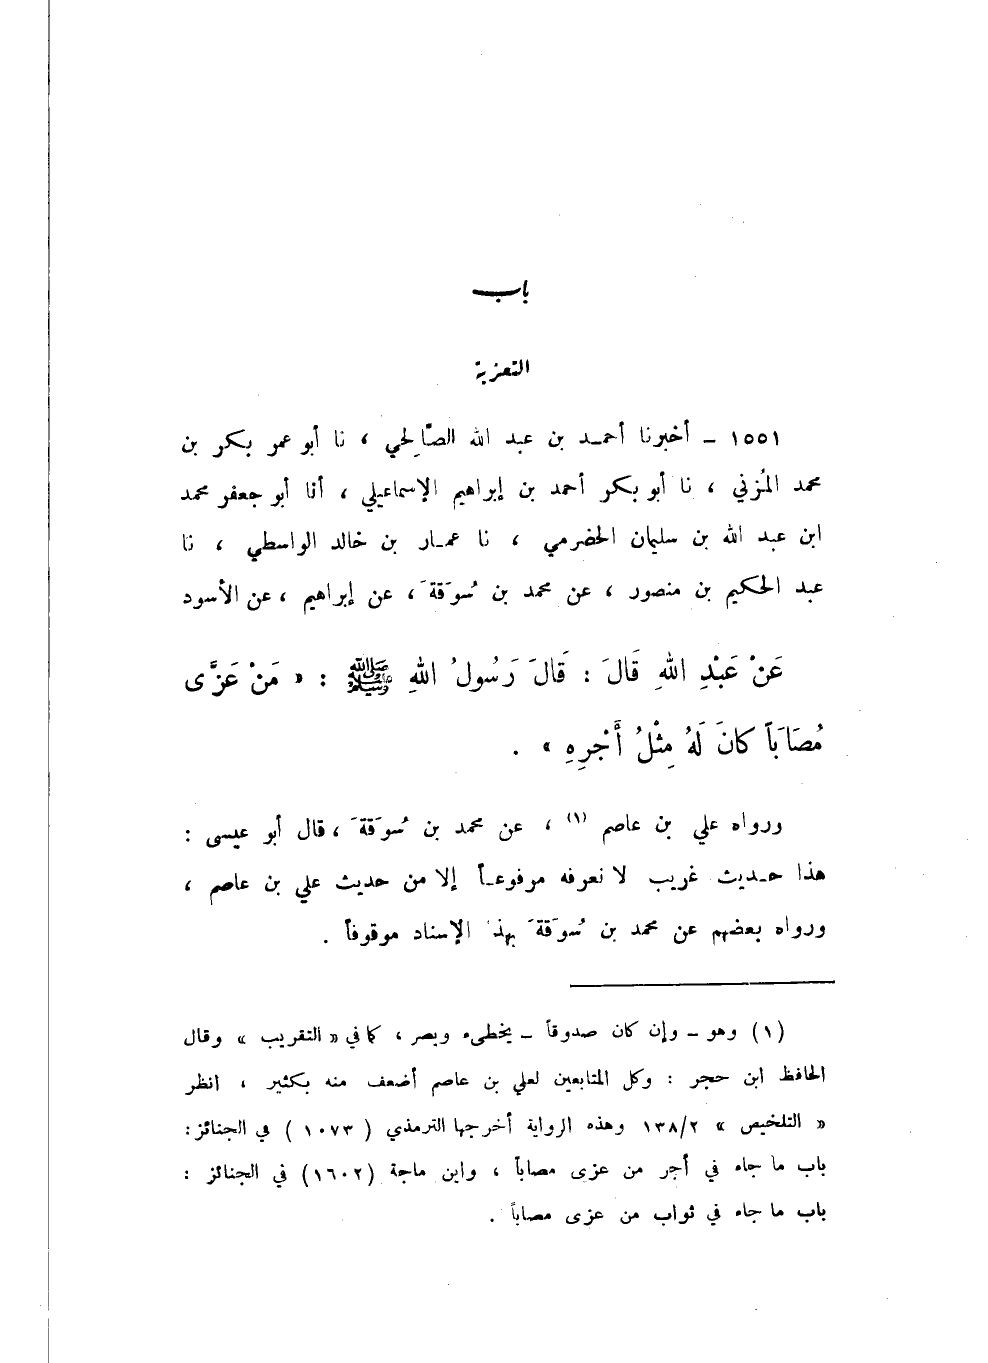 باب
التعزية
١٥٥١ ـ أخبرنا أحمـد بن عبد الله الصَّالِحي ، نا أبو عمر بكر بن
محمد المُزني ، نا أبو بكر أحمد بن إبراهيم الإسماعيلي ، أنا أبو جعفر محمد
ابن عبد الله بن سليمان الحضرمي ، نا عمـار بن خالد الواسطي ، نا
عبد الحكيم بن منصور ، عن محمد بن سُوقَةَ ، عن إبراهيم ، عن الأسود
عَنْ عَبْدِ اللهِ قَالَ : قَالَ رَسُولُ اللهِ ﷺ : « مَنْ عَزَّى
مُصَابَاً كانَ لَهُ مِثْلُ أَجْرِهِ » .
ورواه علي بن عاصم (١) ، عن محمد بن سُوقَةَ ، قال أبو عيسى :
هذا حـديث غريب لا نعرفه مرفوعـاً إلا من حديث علي بن عاصم ،
ورواه بعضهم عن محمد بن سُوقَةَ بهذا الإسناد موقوفاً .
(١) وهو ـ وإن كان صدوقاً ـ يخطىء ويصر ، كما في « التقريب » وقال
الحافظ ابن حجر : وكل المتابعين لعلي بن عاصم أضعف منه بكثير ، انظر
« التلخيص » ١٣٨/٢ وهذه الرواية أخرجها الترمذي ( ١٠٧٣ ) في الجنائز :
باب ما جاء في أجر من عزى مصاباً ، وابن ماجة (١٦٠٢) في الجنائز :
باب ما جاء في ثواب من عزى مصاباً .